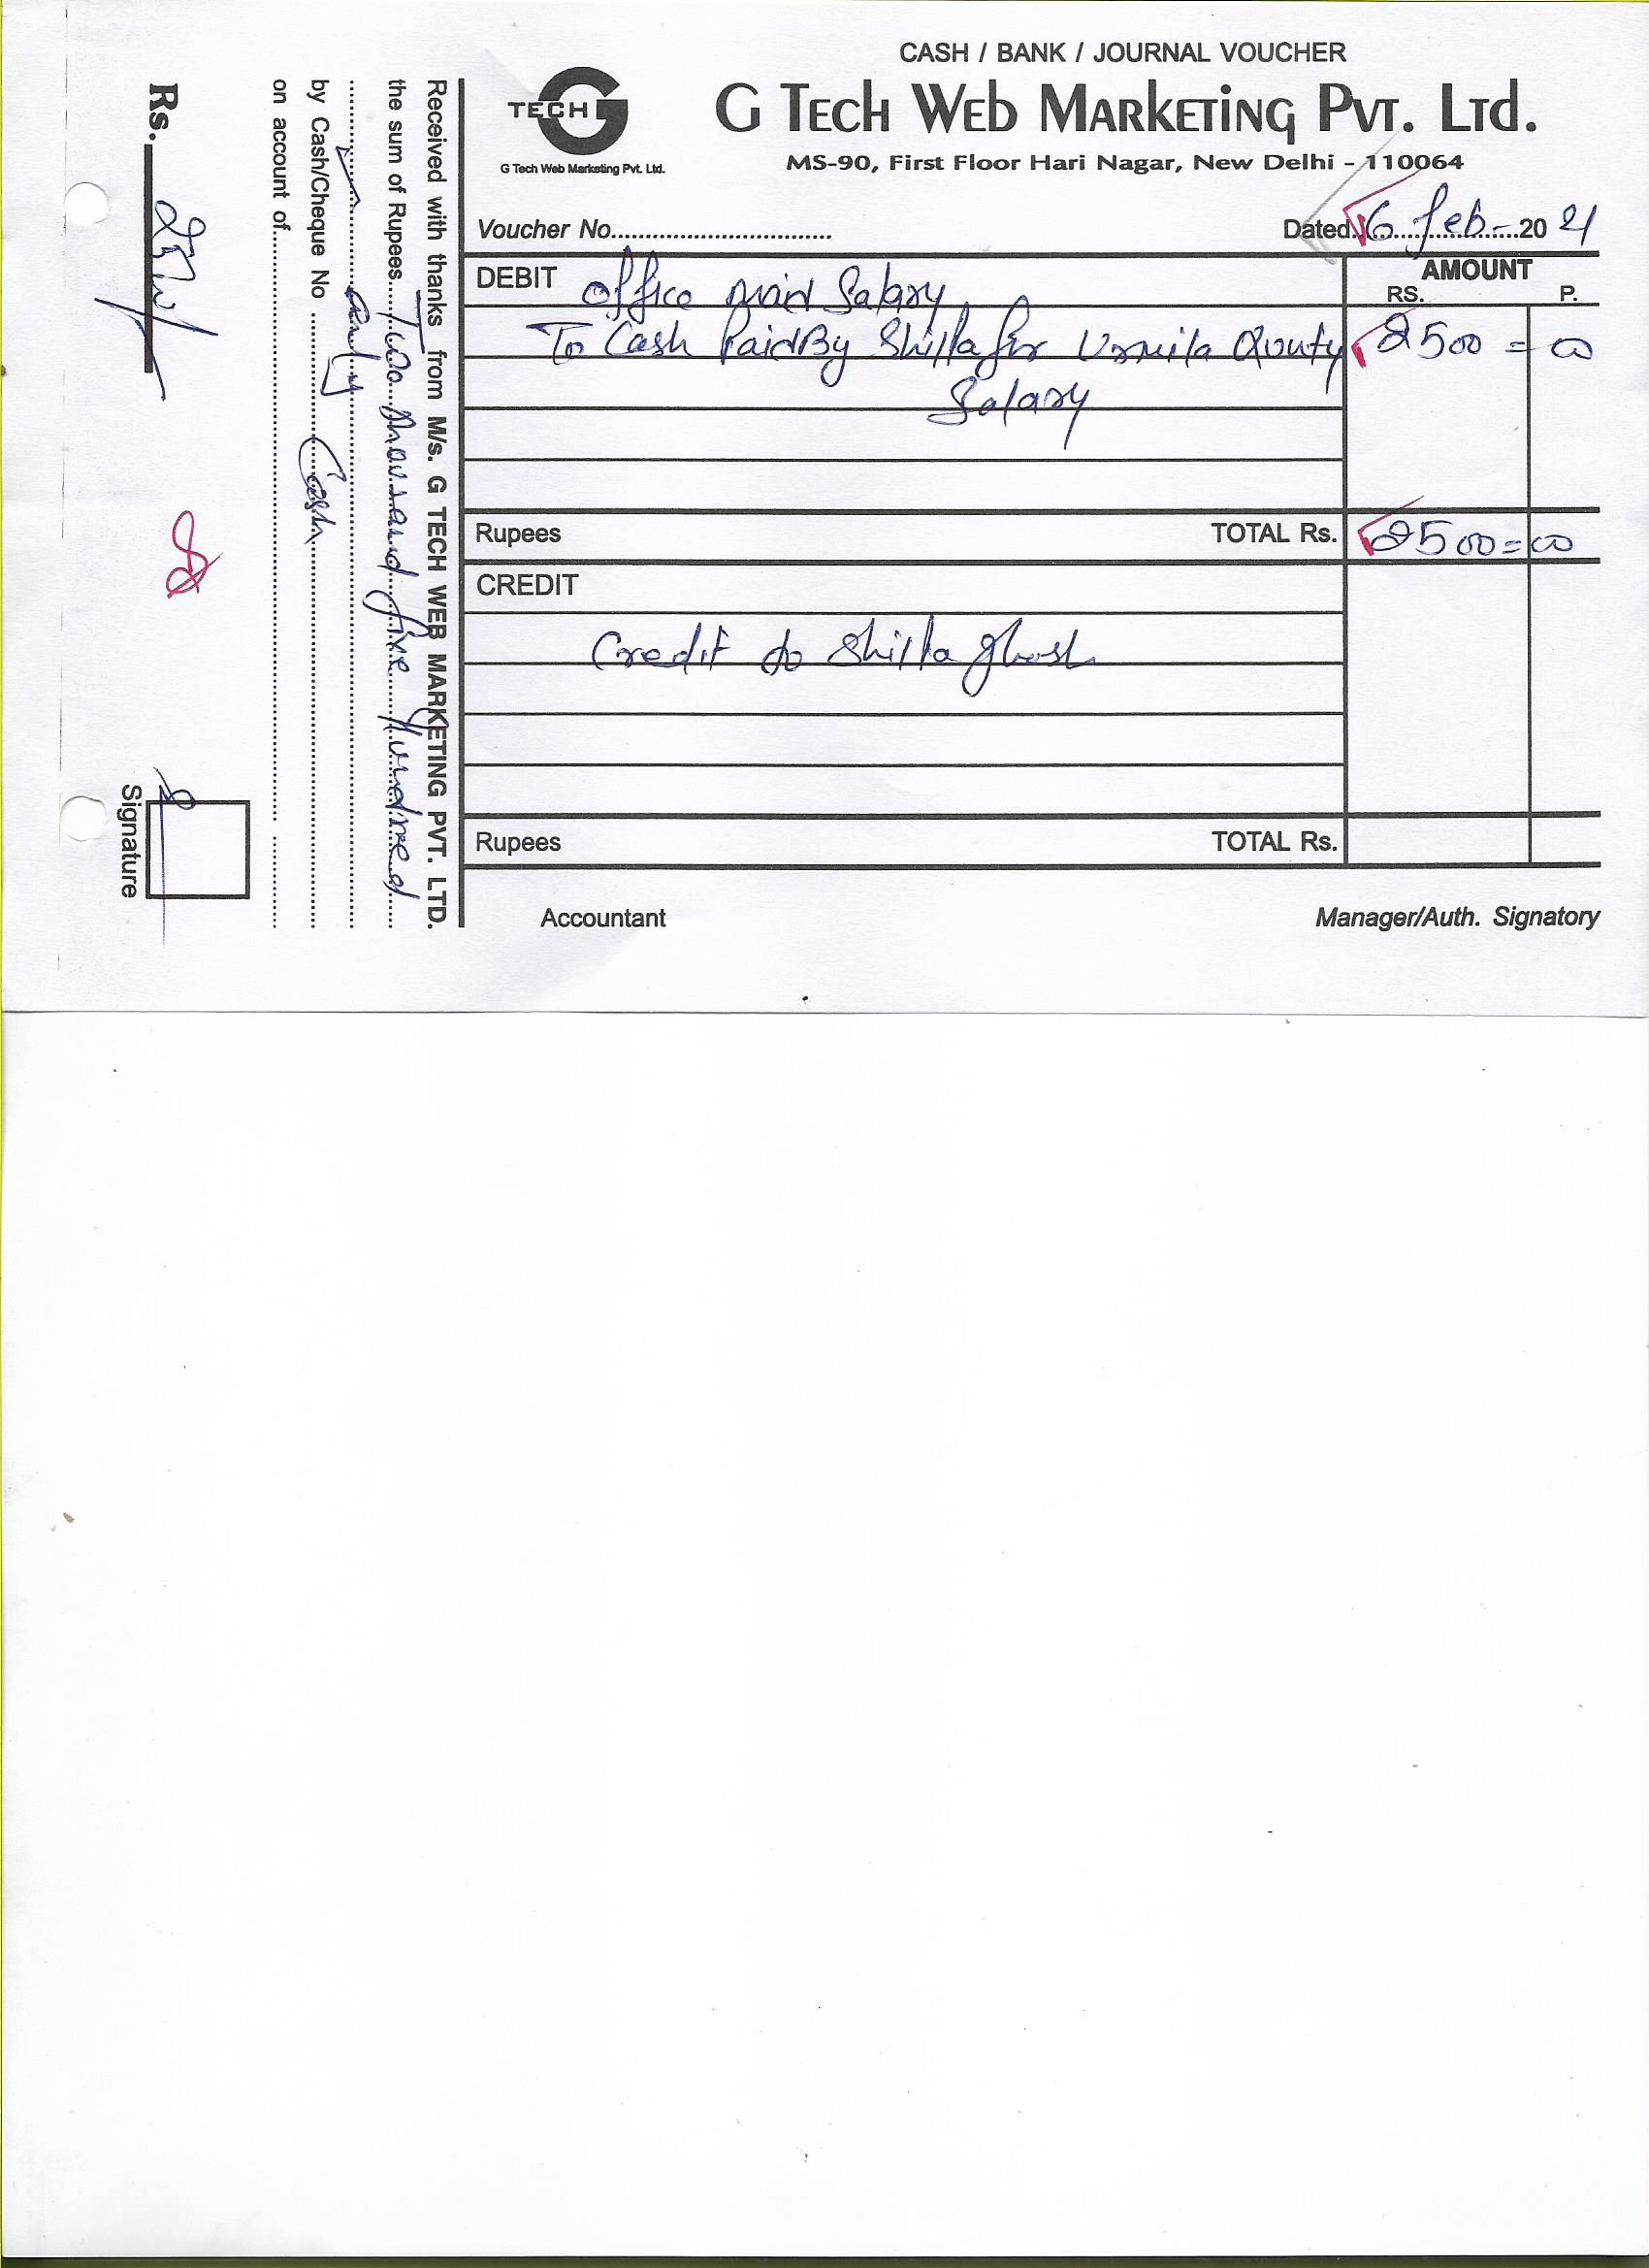 CASH / BANK / JOURNAL VOUCHER
TECH G
G Tech Web Marketing Pvt. Ltd.
G Tech Web Marketing Pvt. Ltd.
MS-90, First Floor Hari Nagar, New Delhi - 110064
Voucher No..............................
Dated 6 feb - 2021
DEBIT office maid Salary
AMOUNT
RS. P.
To Cash Paid By Shilla for Urmila 2500 = 00
Salary
Rupees TOTAL Rs. 2500 = 00
CREDIT
Credit to Shilla Ghosh
Rupees TOTAL Rs.
Accountant Manager/Auth. Signatory
Received with thanks from M/s. G TECH WEB MARKETING PVT. LTD.
the sum of Rupees Two thousand five hundred
only
by Cash/Cheque No Cash
on account of
Rs.
Signature